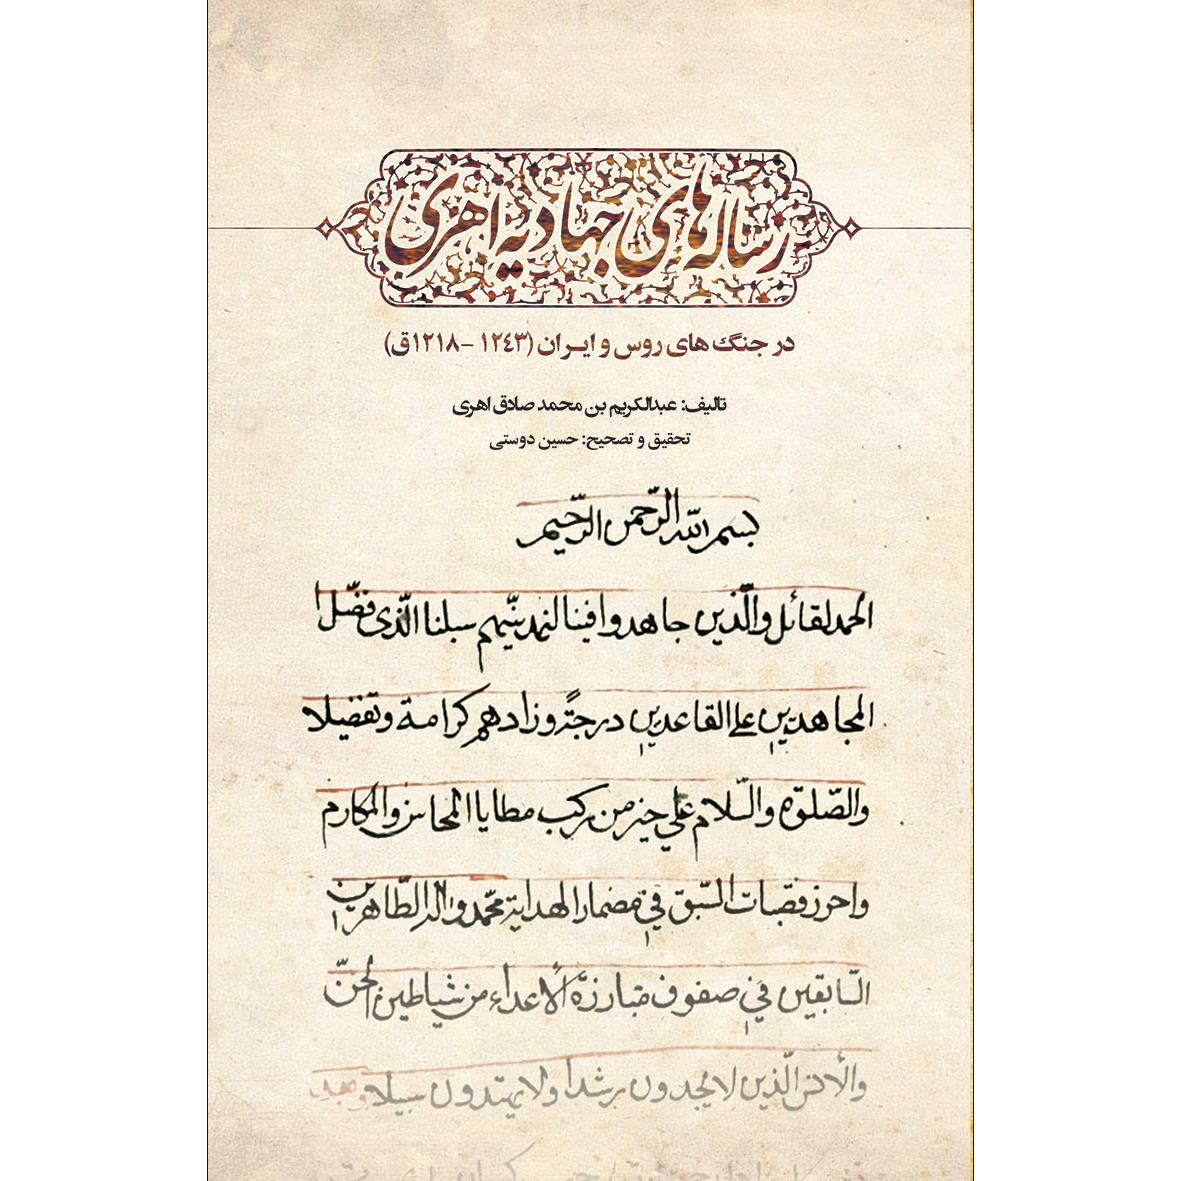 رساله‌های جهادیه اهری
در جنگ های روس و ایران (۱۲٤۳ -۱۲۱۸ق)
تالیف: عبدالکریم بن محمد صادق اهری
تحقیق و تصحیح: حسین دوستی
بسم الله الرّحمن الرّحیم
الحمد لقائل والّذین جاهدوا فینا لنهدینّهم سبلنا الّذی فضّل
المجاهدین علی القاعدین درجةً وزادهم کرامة وتفضیلا
والصّلوة والسّلام علی خیر من رکب مطایا المحاسن والمکارم
واحرز قصبات السّبق فی مضمار الهدایة محمّد وآله الطّاهرین
السّابقین فی صفوف مبارزة الأعداء من شیاطین الجنّ
والأنس الّذین لا یجدون رشدا ولا یهتدون سبیلا وبعد